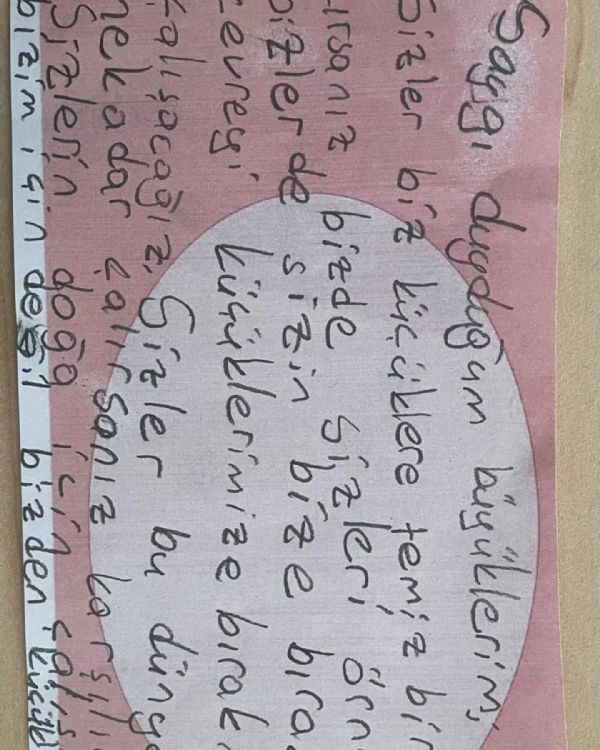 Saygı duyduğum büyüklerim,
Sizler biz küçüklere temiz bir
ırsanız bizde sizleri örn
bizlerde sizin bize bıra
çevreyi küçüklerimize bırak
çalışacağız. Sizler bu düny
nekadar çalırsanız karşılı
Sizlerin doğa için çalış
bizim için değil bizden küçük